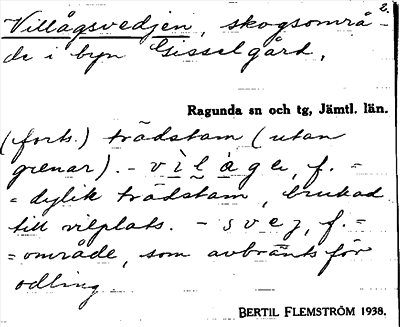 2.
Villågsvedjen, skogsområ-
de i byn Gisselgård.
Ragunda sn och tg, Jämtl. län.
(forts.) trädstam (utan
grenar). – vìlåga, f. =
= dylik trädstam, brukad
till vilplats. – svej, f. =
= område, som avbränts för
odling
BERTIL FLEMSTRÖM 1938.